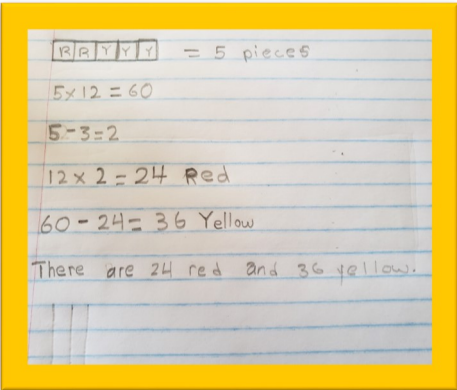 R R Y Y Y = 5 pieces
5x12 = 60
5-3=2
12 x 2 = 24 Red
60 - 24= 36 Yellow
There are 24 red and 36 yellow.